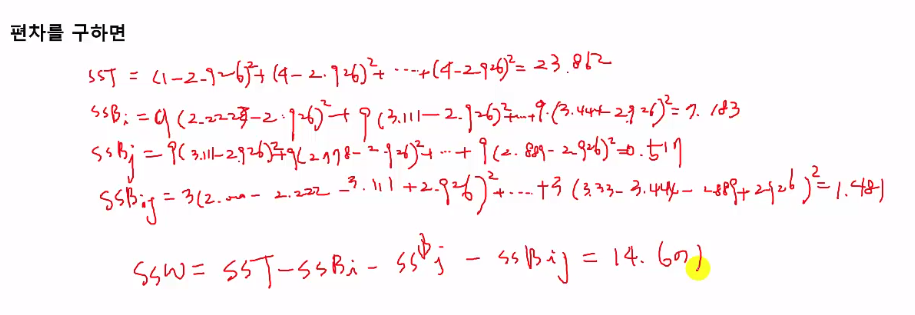 편차를 구하면
SST = (1-2.926)²+(4-2.926)²+ ⋯ +(4-2.926)² = 23.852
SSBi = 9(2.222-2.926)²+9(3.111-2.926)²+⋯+9(3.444-2.926)² = 7.183
SSBj = 9(3.111-2.926)²+9(2.778-2.926)²+⋯+9(2.889-2.926)² = 0.517
SSBij = 3(2.000-2.222-3.111+2.926)²+⋯+3(3.33-3.444-2.889+2.926)² = 1.481
SSW = SST-SSBi-SSBj-SSBij = 14.671